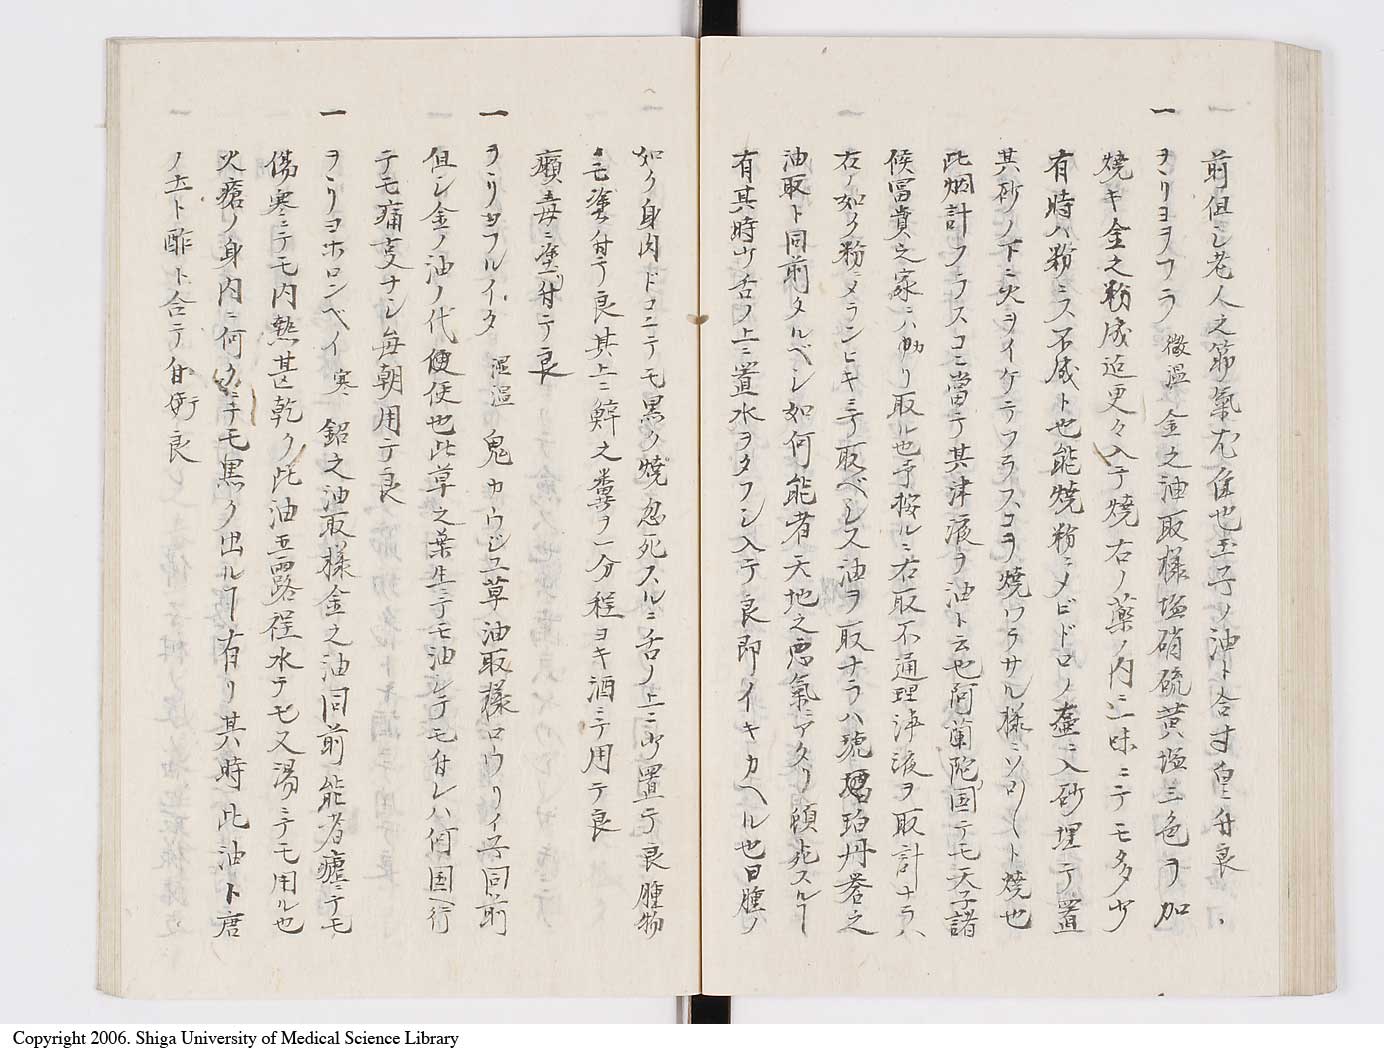 前但シ老人之筋氣尤佳也玉子ノ油ト合古皇舟良
一 ヲヽリヨヲフラ 微温 金之油取樣塩硝硫黄塩三色ヲ加
燒キ金之粉成迠更々入テ燒右ノ藥ノ内三味ニテモ多少
有時ハ粉ニス不成ト也能燒粉ニメビドロノ壷ニ入砂埋テ置
其砂ノ下ニ火ヲイケテフラスコヲ燒ワラサル樣ニソロ〱ト燒也
此烟計フラスコニ當テ其津液ヲ油ト云也阿蘭陀国テモ天子諸
候冨貴之家ニハ取ル也予按ルニ右取不通理浄液ヲ取計ナラハ
右ノ如ク粉ニメランヒキニテ取ベシス油ヲ取ナラハ琥珀丹礬之
油取ト同前タルベシ如何能者天地之悪氣ニアタリ頓死スルヿ
有其時少舌ノ上ニ置水ヲタフシ入テ良即イキカヘル也日腫ノ
如ク身肉ドコニテモ黒ク燒忽死スルニ舌ノ上ニ少置テ良腫物
ニモ塗付テ良其上ニ觧之糞ヲ一分程ヨキ酒ニテ用テ良
癩毒ニ塗付テ良
一 ヲヽリヨフルイタ 湿温 鬼カウジユ草油取樣ロウリイ吾同前
但シ金ノ油ノ代便使也此草之葉生ニテモ油ニテモ付レハ何国ヘ行
テモ痛支ナシ毎朝用テ良
一 ヲヽリヨホロンベイ 寒 鉛之油取樣金之油同前能者瘧ニテモ
傷寒ニテモ内熱甚乾ク此油五露程水テモ又湯ニテモ用ル也
火瘡ノ身内ニ何ニテモ黒ク出ルヿ有リ其時此油ト唐
ノ土ト酢ト合テ付良
Copyright 2006. Shiga University of Medical Science Library